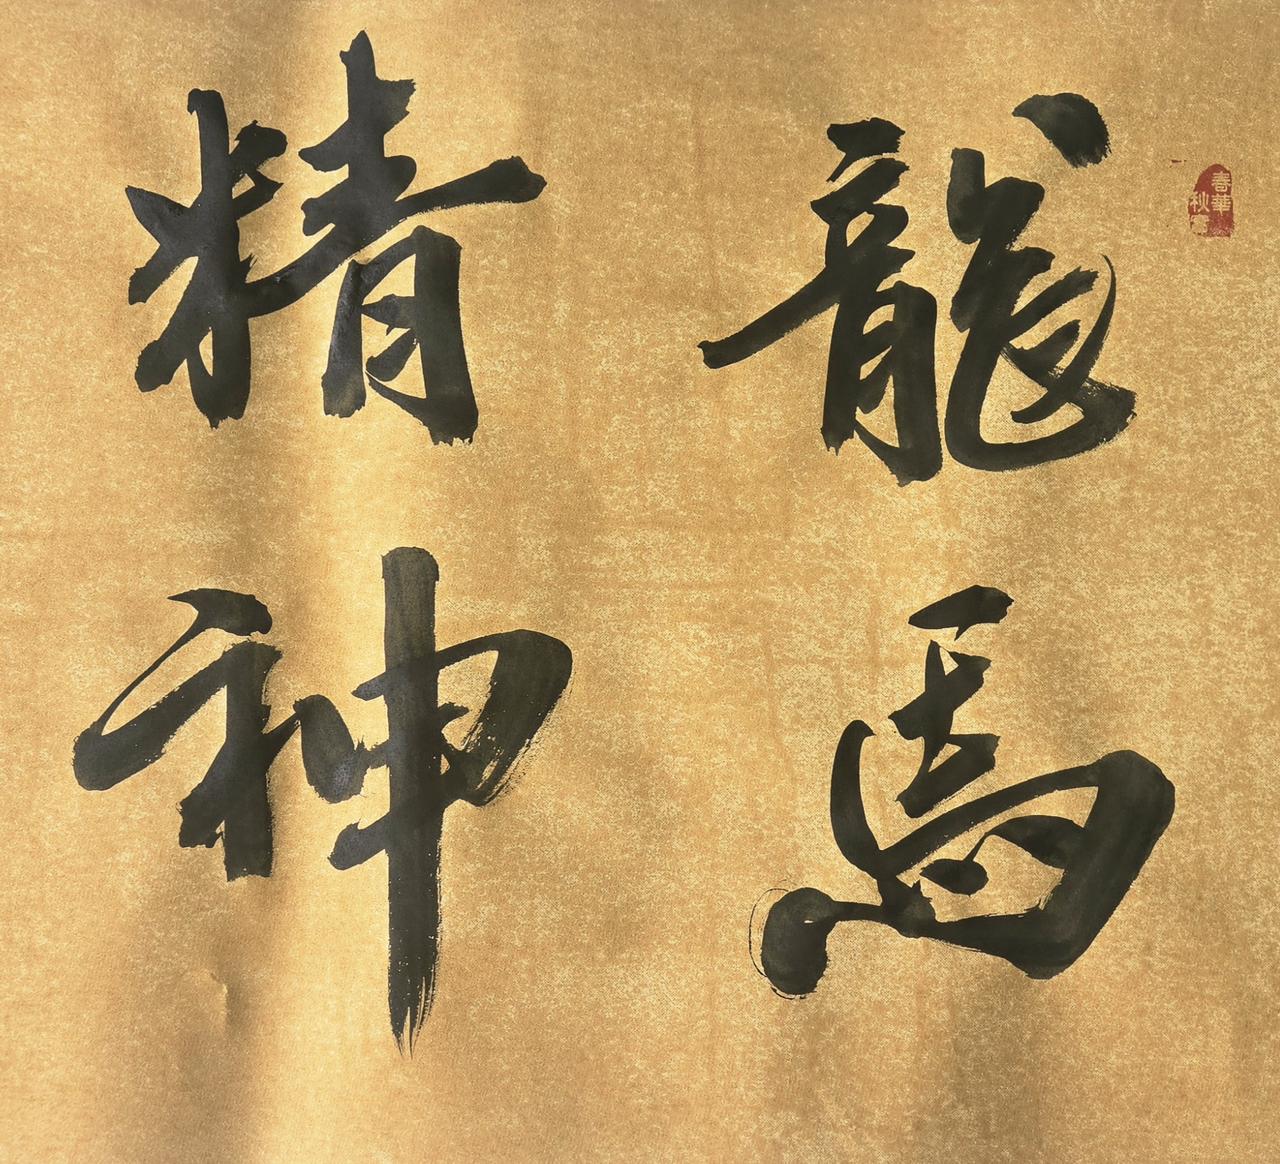 龍馬
精神
春華
秋實